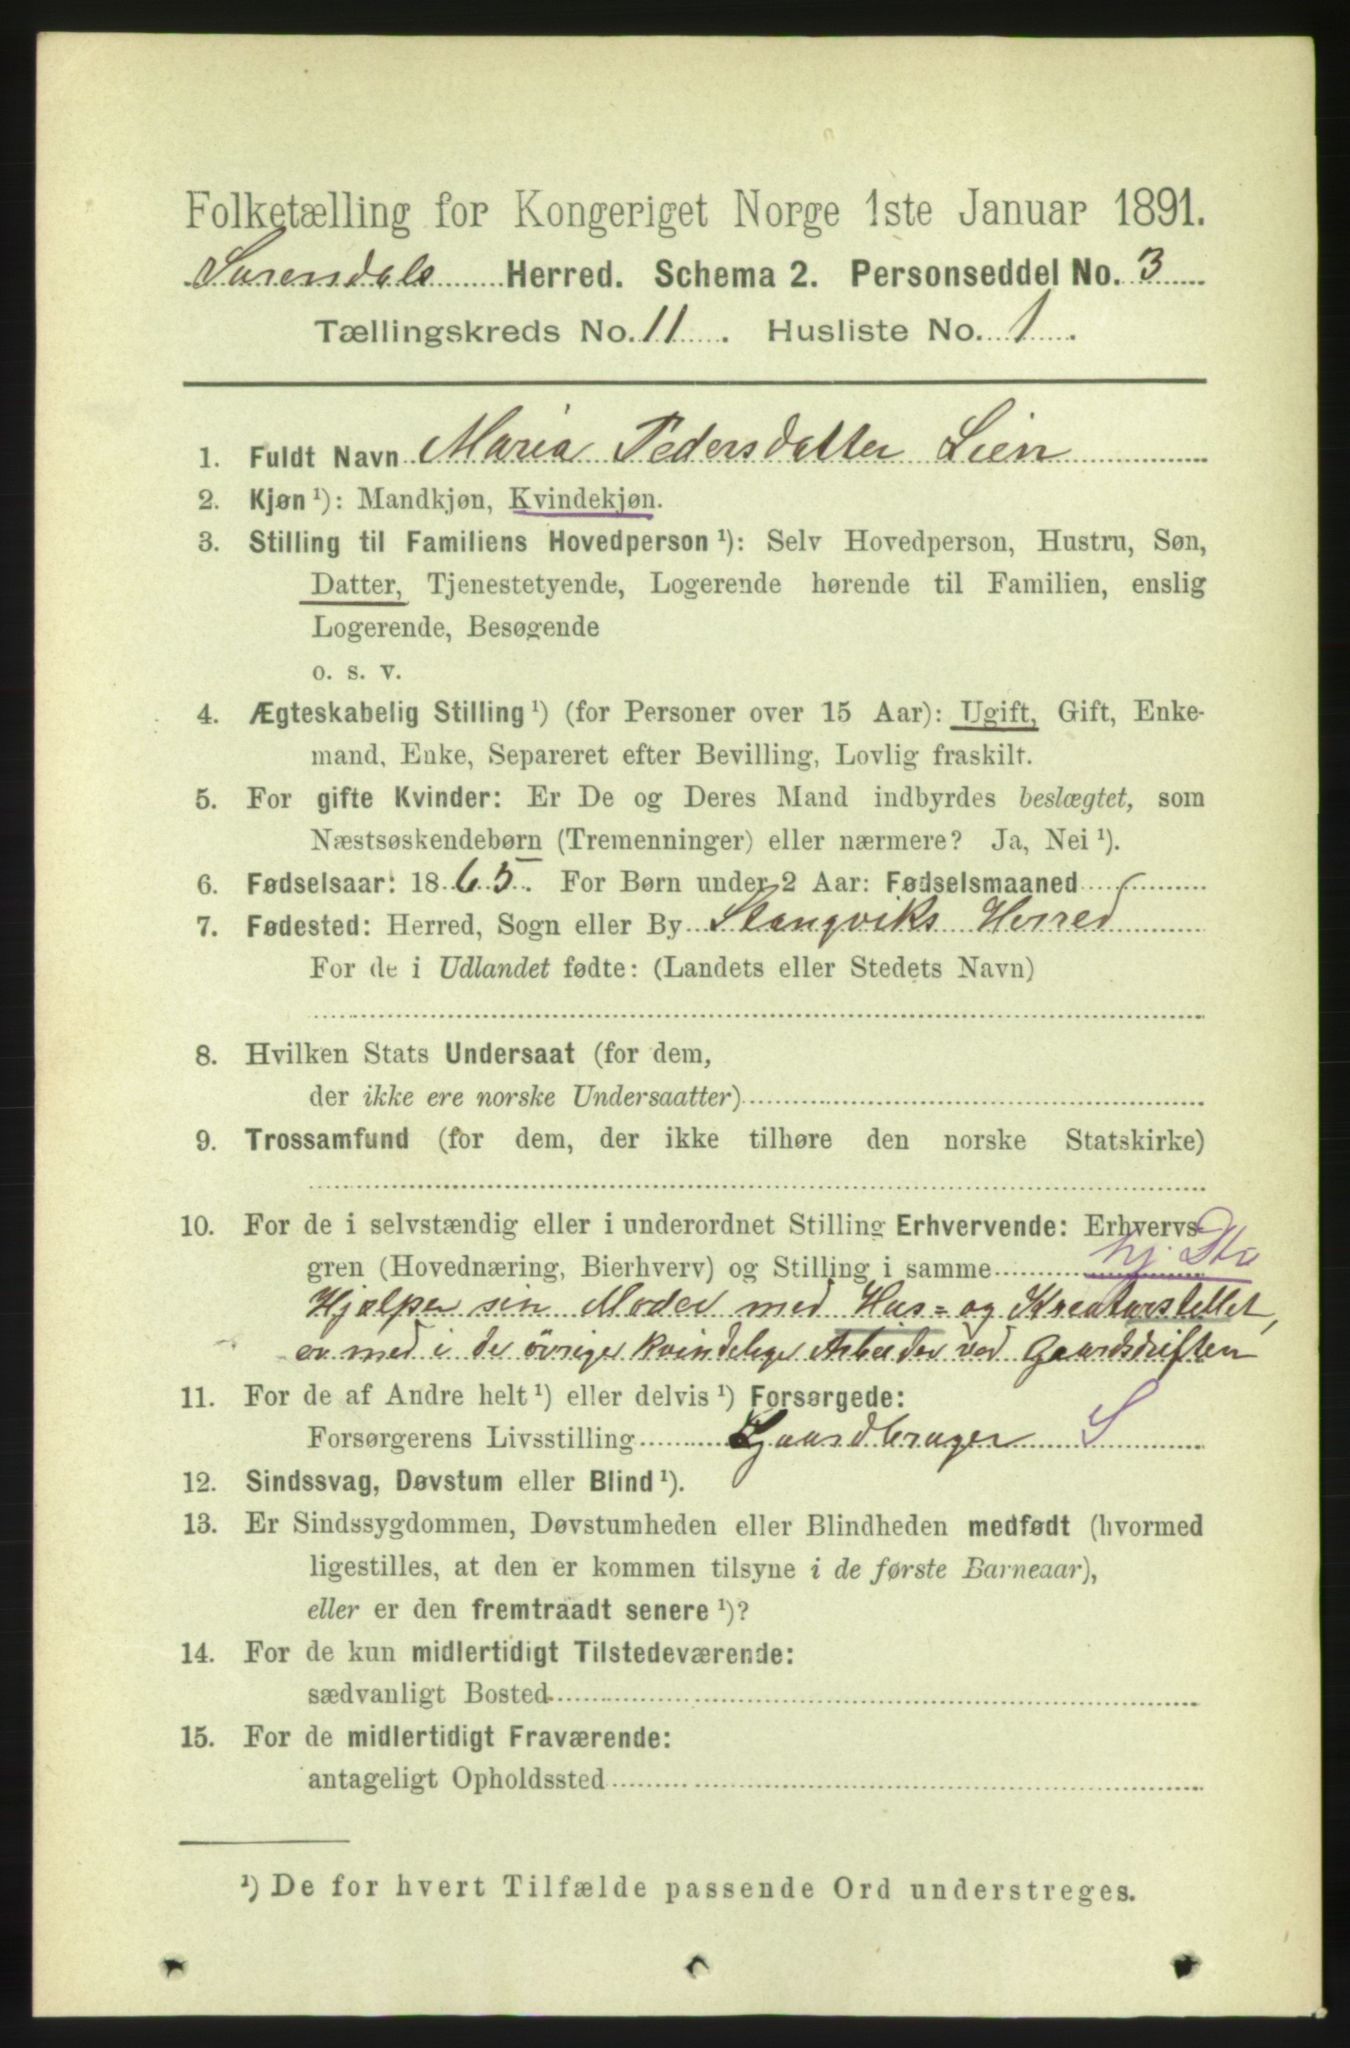 Folketælling for Kongeriget Norge 1ste Januar 1891.
Surendals Herred. Schema 2. Personseddel No. 3
Tællingskreds No. 11. Husliste No. 1.
1. Fuldt Navn Maria Pedersdatter Lien
2. Kjøn ¹): Mandkjøn, Kvindekjøn.
3. Stilling til Familiens Hovedperson ¹): Selv Hovedperson, Hustru, Søn,
Datter, Tjenestetyende, Logerende hørende til Familien, enslig
Logerende, Besøgende
o. s. v.
4. Ægteskabelig Stilling ¹) (for Personer over 15 Aar): Ugift, Gift, Enke-
mand, Enke, Separeret efter Bevilling, Lovlig fraskilt.
5. For gifte Kvinder: Er De og Deres Mand indbyrdes beslægtet, som
Næstsøskendebørn (Tremenninger) eller nærmere? Ja, Nei ¹).
6. Fødselsaar: 1865. For Børn under 2 Aar: Fødselsmaaned
7. Fødested: Herred, Sogn eller By Stangviks Herred
For de i Udlandet fødte: (Landets eller Stedets Navn)
8. Hvilken Stats Undersaat (for dem,
der ikke ere norske Undersaatter)
9. Trossamfund (for dem, der ikke tilhøre den norske Statskirke)
10. For de i selvstændig eller i underordnet Stilling Erhvervende: Erhvervs-
gren (Hovednæring, Bierhverv) og Stilling i samme hj.
Hjælper sin Moder med Hus= og Kreaturstellet,
er med i de øvrige kvindelige Arbeider ved Gaardsdriften
11. For de af Andre helt ¹) eller delvis ¹) Forsørgede:
Forsørgerens Livsstilling Gaardbruger S
12. Sindssvag, Døvstum eller Blind ¹).
13. Er Sindssygdommen, Døvstumheden eller Blindheden medfødt (hvormed
ligestilles, at den er kommen tilsyne i de første Barneaar),
eller er den fremtraadt senere ¹)?
14. For de kun midlertidigt Tilstedeværende:
sædvanligt Bosted
15. For de midlertidigt Fraværende:
antageligt Opholdssted
¹) De for hvert Tilfælde passende Ord understreges.